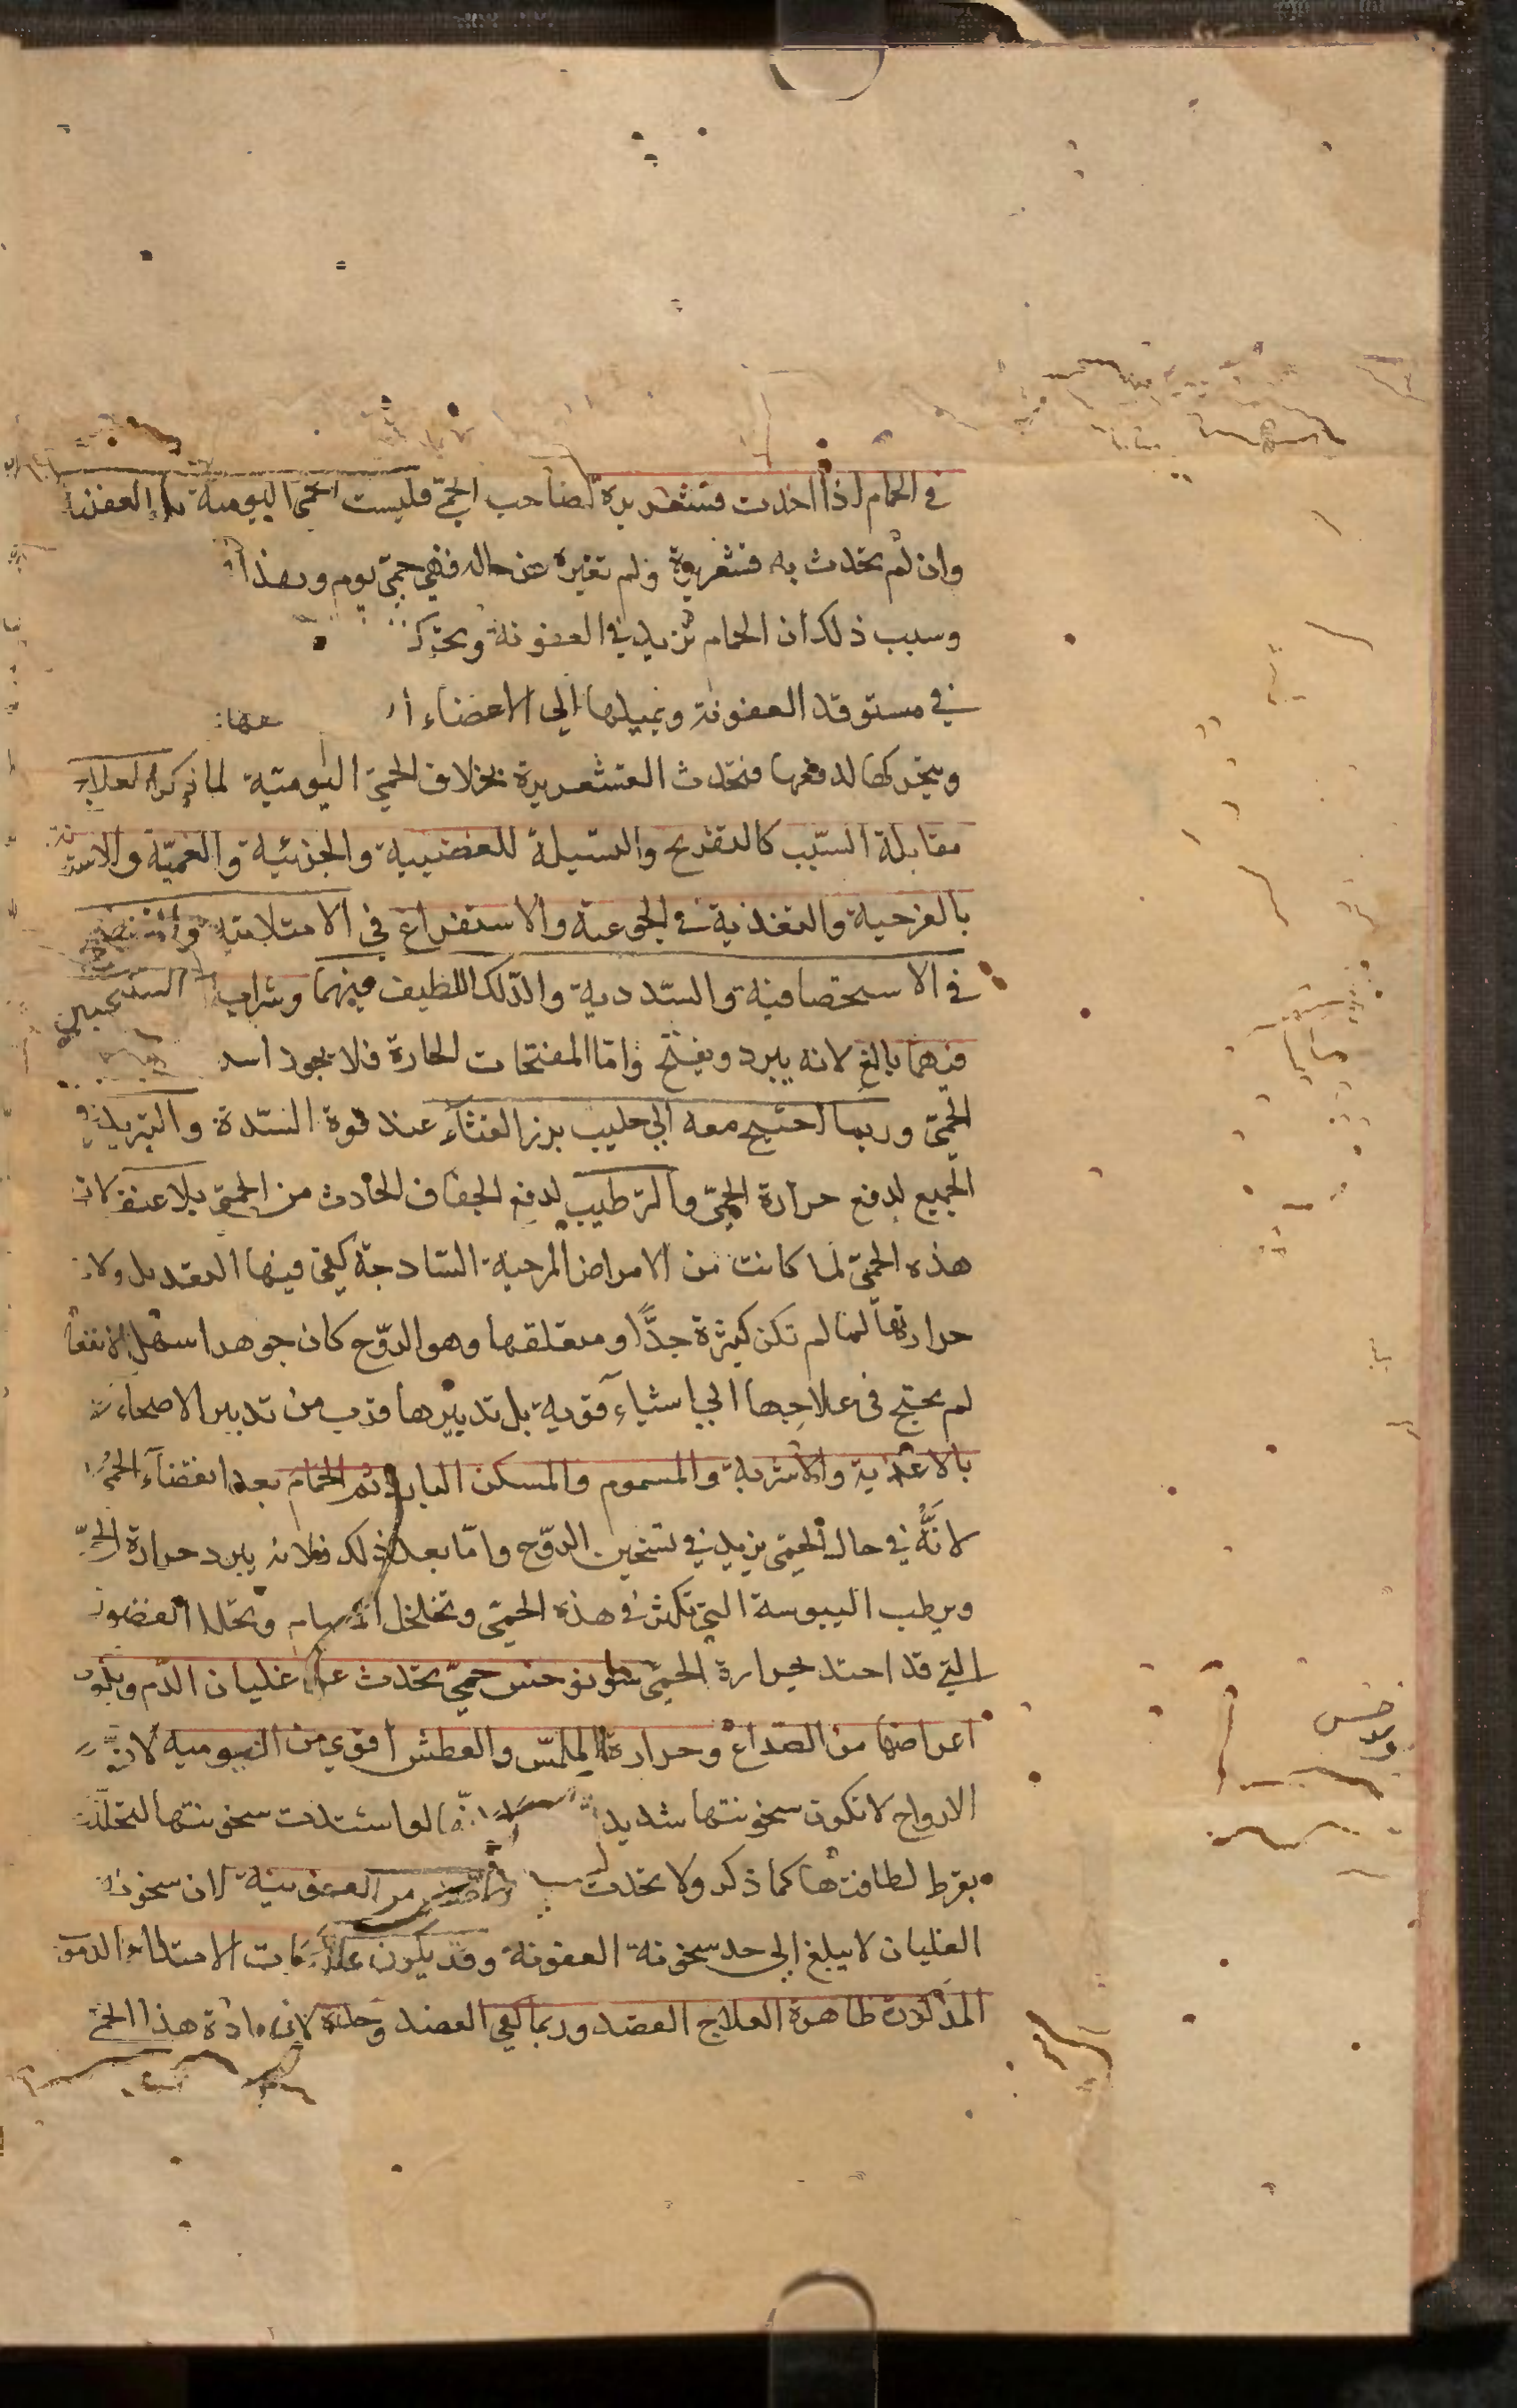 في الحمام اذا احدث قشعريرة لصاحب الحمى فليست الحمى اليومية بل العفنية
وان لم تحدث به قشعريرة ولم تغيره عن حاله فهي حمى يوم وهذا
وسبب ذلك ان الحمام تزيد في العفونة وتحرك
في مستوقد العفونة ويميلها الى الاعضاء
ويحركها لدفعها فتحدث القشعريرة بخلاف الحمى اليومية لما ذكر العلاج
مقابلة السبب كالتفريح والتسيلة للغضبية والجزئية والغمية والاست
بالفرحية والتغذية في الجوعية والاستفراغ في الامتلائية
في الاستحصافية والسددية والدلك اللطيف فيهما وشراب السكنجبين
فيهما بالغ لانه يبرد ويفتح واما المفتحات الحارة فلا يجود
الحمى وربما احتيج معه الى حليب بزر القثاء عند قوة السدة والتبريد في
الجميع لدفع حرارة الحمى والترطيب لدفع الجفاف الحادث من الحمى بلا عنف لان
هذه الحمى لما كانت من الامراض المرحية الساذجة كفى فيها التعديل ولان
حرارتها لما لم تكن كثيرة جدًّا ومتعلقها وهو الروح كان جوهرا سهل الانفعا
لم يحتج في علاجها الى اشياء قوية بل تدبيرها قرب من تدبير الاصحاء
بالاغذية والاشربة والمسموم والمسكن البارد ثم الحمام بعد انقضاء الحمى
لانَّهُ في حال الحمى يزيد في تسخين الروح واما بعد ذلك فلانه يبرد حرارة الحمى
ويرطب اليبوسة التي تكثر في هذه الحمى وتخلخل المسام وتحلل الفضول
التي قد احتد بحرارة الحمى سونوخس حمى تحدث عن غليان الدم ويكون
اعراضها من الصداع وحرارة الملمس والعطش اقوى من اليومية لانّ
الارواح لا تكون سخونتها شديد لانها لو اشتدت سخونتها لتحللت
بفرط لطافتها كما ذكر ولا تحدث من العفونية لان سخونة
الغليان لا يبلغ الى حد سخونة العفونة وقد يكون علامات الامتلاء الدموي
المذكورة ظاهرة العلاج الفصد وربما كفى الفصد وحده لان مادة هذا الحمى